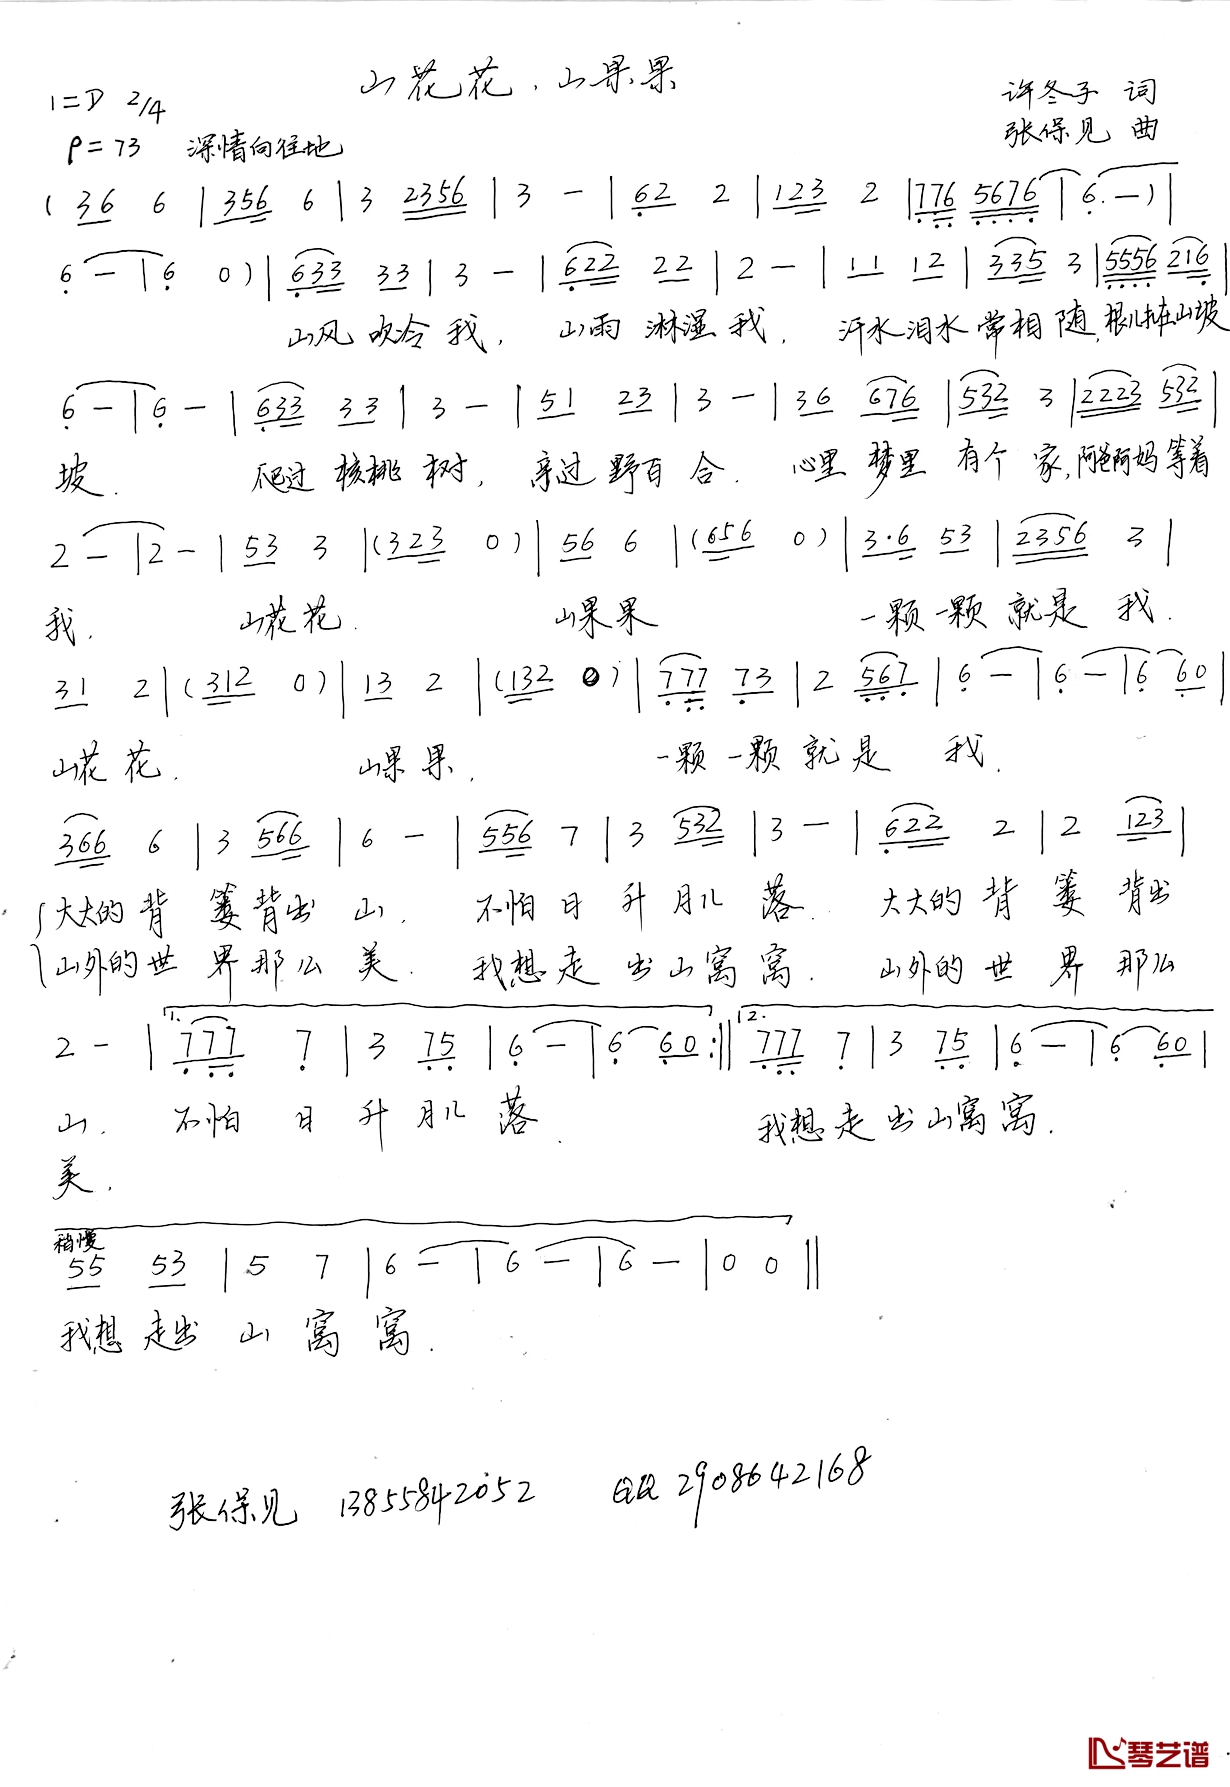 山花花、山果果
1=D 2/4 许冬子 词
♩=73 深情向往地 张保见 曲
( 36 6 | 356 6 | 3 2356 | 3 — | 62 2 | 123 2 | 776 5676 | 6. — ) |
6 — | 6 0 ) | 633 33 | 3 — | 622 22 | 2 — | 11 12 | 335 3 | 5556 216 |
山风 吹冷 我, 山雨 淋湿 我. 汗水 泪水 常相 随, 根儿扎在山坡
6 — | 6 — | 633 33 | 3 — | 51 23 | 3 — | 36 676 | 532 3 | 2223 532 |
坡. 爬过 核桃 树, 亲过 野百 合. 心里 梦里 有个 家, 阿爸阿妈等着
2 — | 2 — | 53 3 | ( 323 0 ) | 56 6 | ( 656 0 ) | 3·6 53 | 2356 3 |
我. 山花花. 山果果 一颗 一颗 就是 我.
31 2 | ( 312 0 ) | 13 2 | ( 132 0 ) | 777 73 | 2 567 | 6 — | 6 — | 6 60 |
山花 花. 山果 果. 一颗 一颗 就是 我.
366 6 | 3 566 | 6 — | 556 7 | 3 532 | 3 — | 622 2 | 2 123 |
大大的 背 篓 背出 山. 不怕 日 升 月儿 落. 大大的 背 篓 背出
山外的 世 界 那么 美. 我想 走 出 山窝 窝. 山外的 世 界 那么
2 — | 1. 777 7 | 3 75 | 6 — | 6 60 :|| 2. 777 7 | 3 75 | 6 — | 6 60 |
山. 不怕 日 升 月儿 落. 我想 走 出 山窝 窝.
美.
稍慢
55 53 | 5 7 | 6 — | 6 — | 6 — | 0 0 ||
我想 走出 山 窝 窝.
张保见 13855842052 QQ 2908642168
琴艺谱